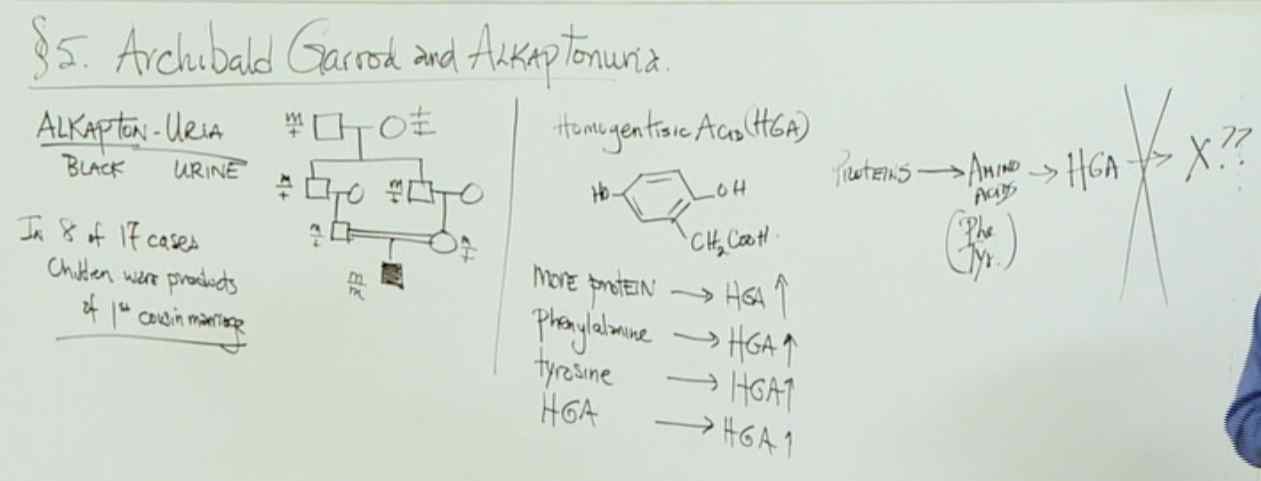 §5. Archibald Garrod and ALKAPTonuria.
ALKAPTON-URIA
BLACK URINE
In 8 of 17 cases
Children were products
of 1st cousin marriage
m/+
+/+
m/+
m/+
m/+
m/+
m/m
Homogentisic Acid (HGA)
HO
OH
CH₂COOH.
MORE PROTEIN → HGA ↑
Phenylalanine → HGA ↑
tyrosine → HGA ↑
HGA → HGA ↑
PROTEINS → AMINO ACIDS → HGA → X??
(Phe
Tyr.)